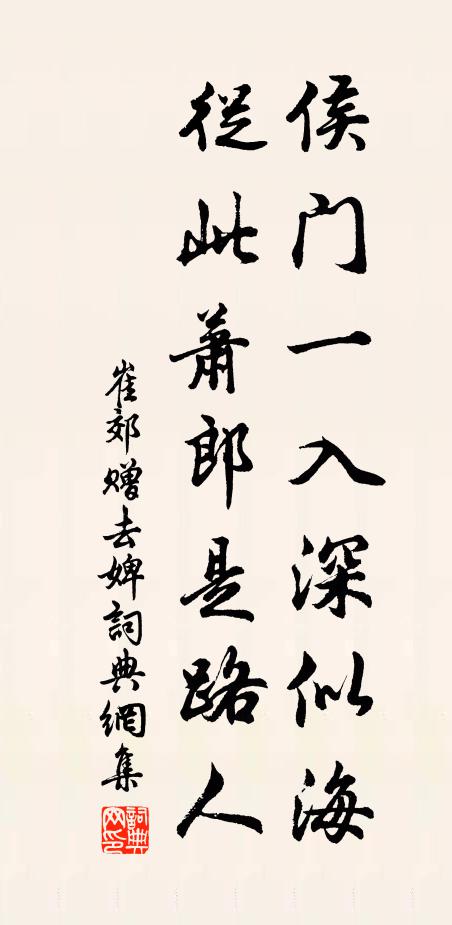 侯门一入深似海
從此蕭郎是路人
崔郊赠去婢詞典網集
詞典网印